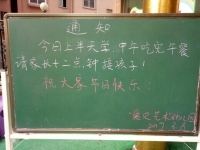 通知
今日上半天学,中午吃完午餐
请家长十二点钟接孩子!
祝大家节日快乐:
艺术幼儿园